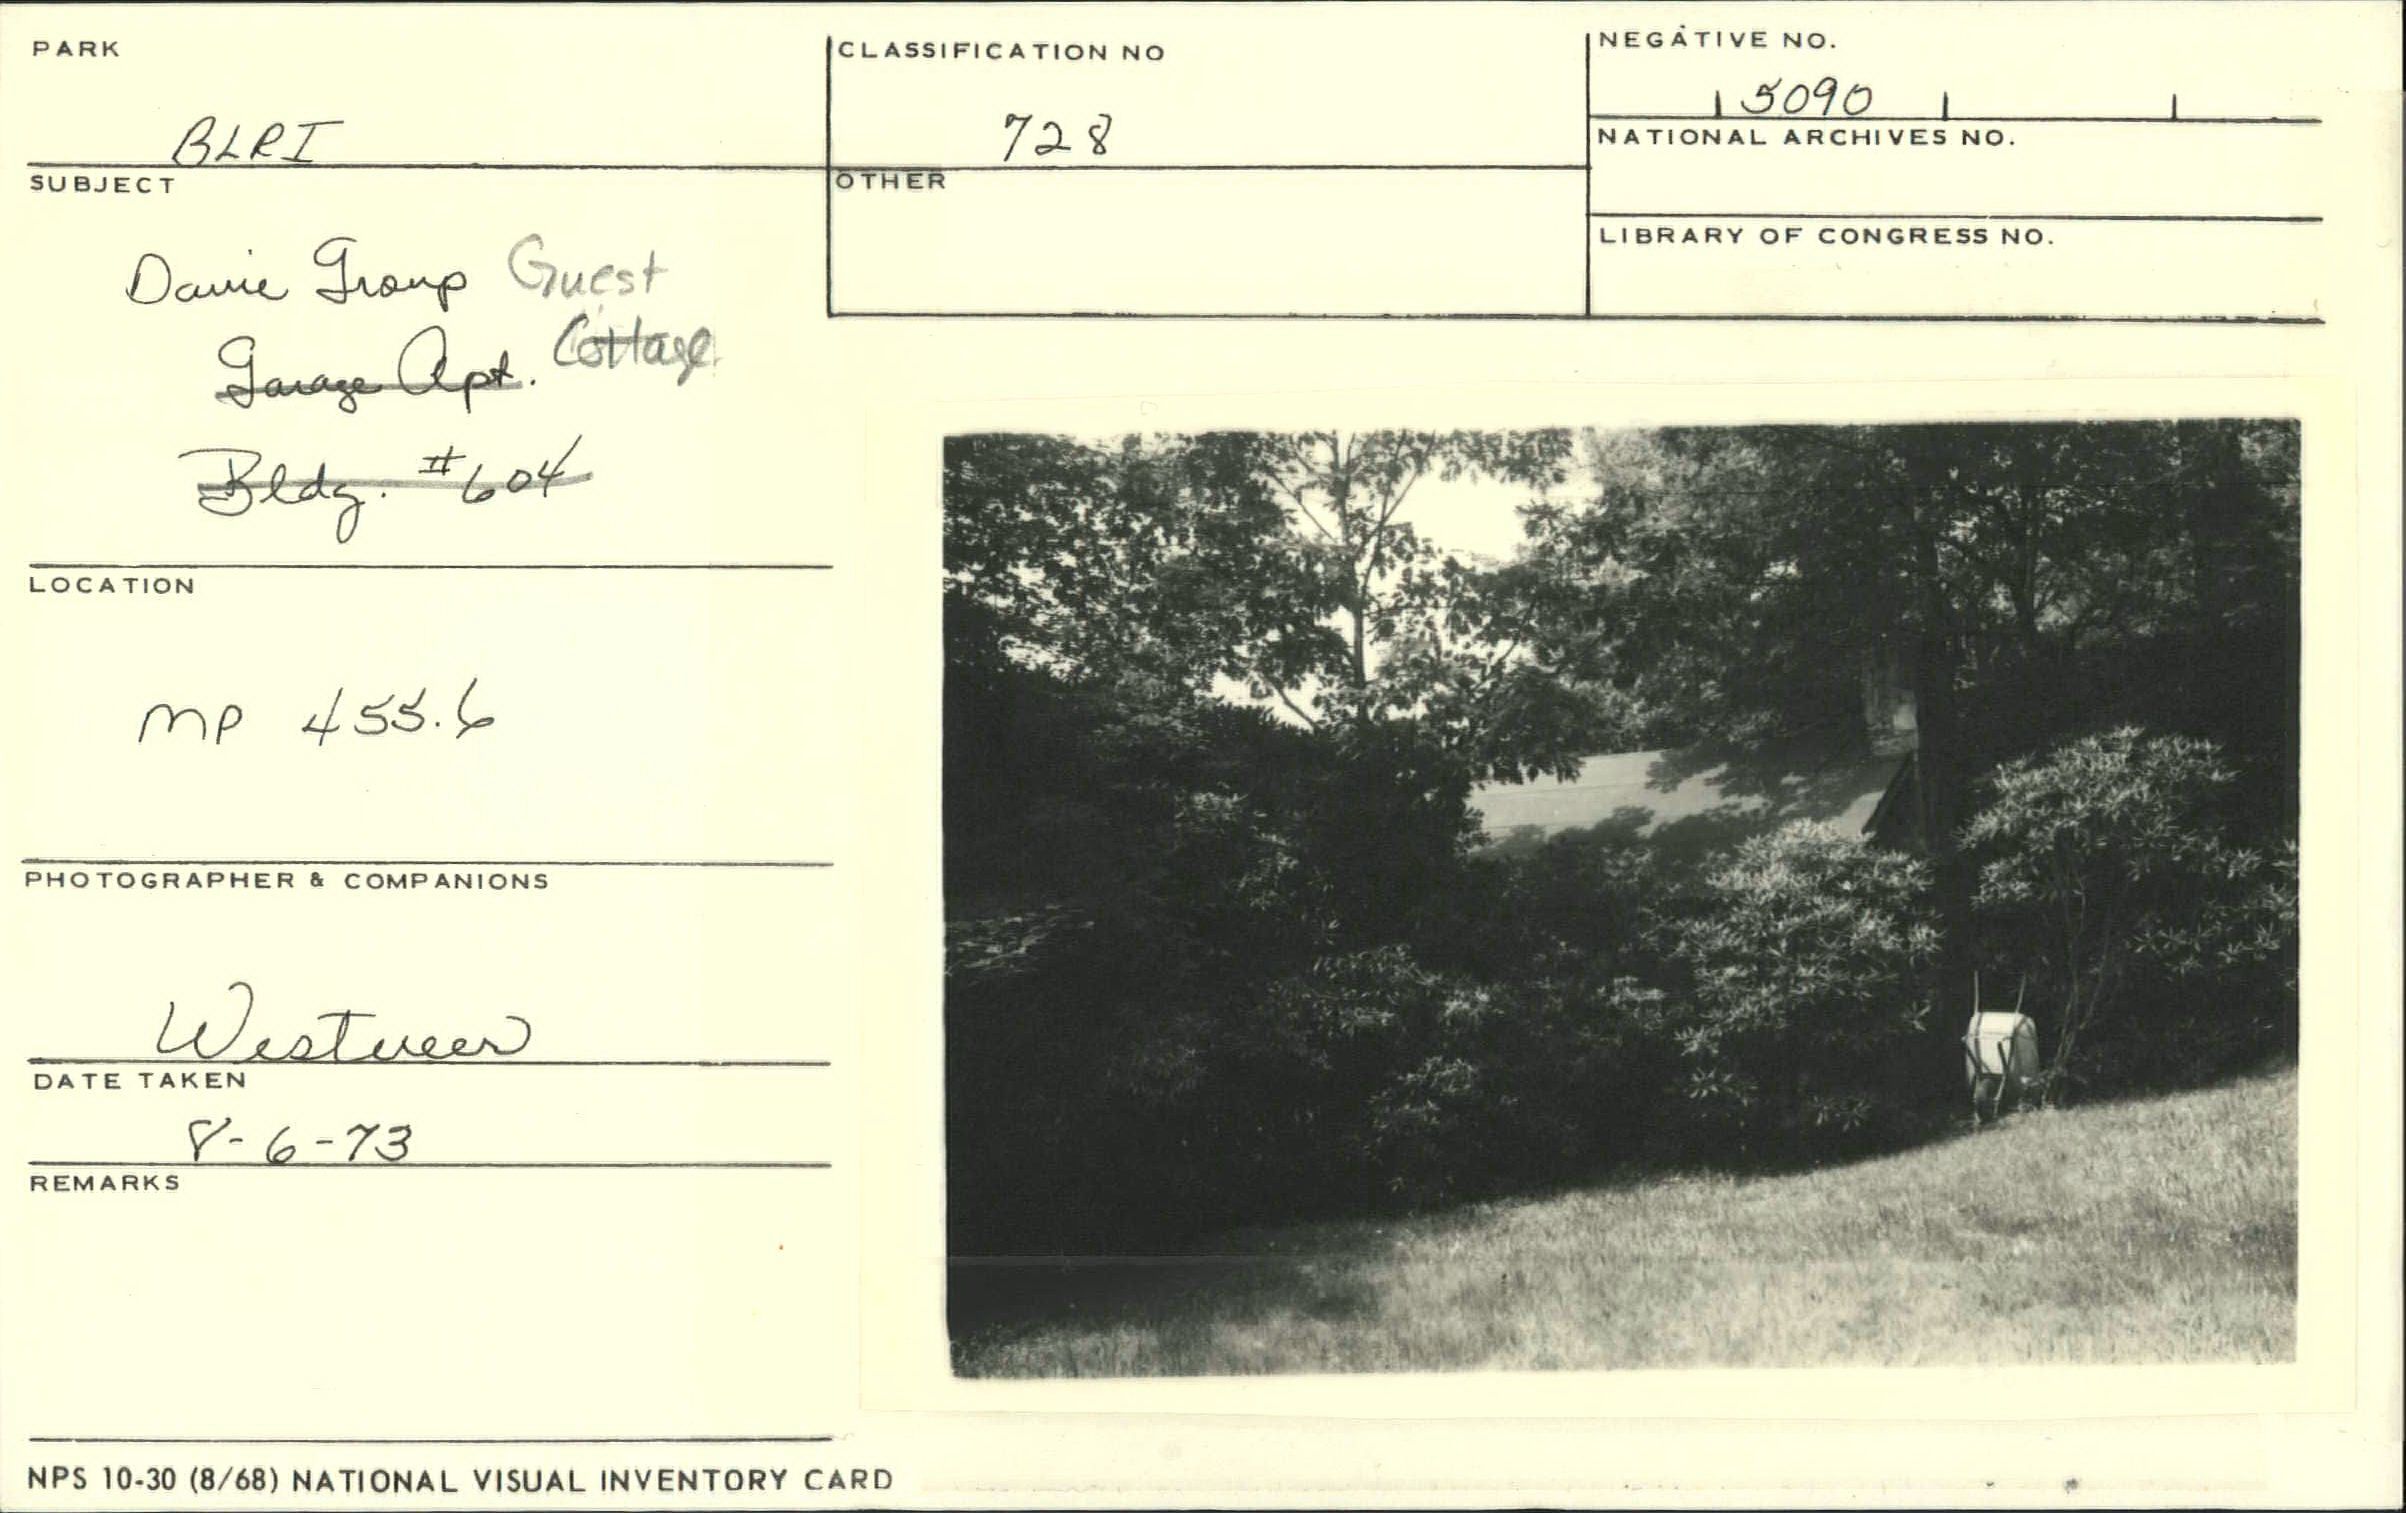 PARK
BLRI
CLASSIFICATION NO
728
NEGATIVE NO.
5090
NATIONAL ARCHIVES NO.
LIBRARY OF CONGRESS NO.
OTHER
SUBJECT
Davie Group Guest
Garage Apt. Cottage
Bldg. #604
LOCATION
MP 455.6
PHOTOGRAPHER & COMPANIONS
Westveer
DATE TAKEN
8-6-73
REMARKS
NPS 10-30 (8/68) NATIONAL VISUAL INVENTORY CARD